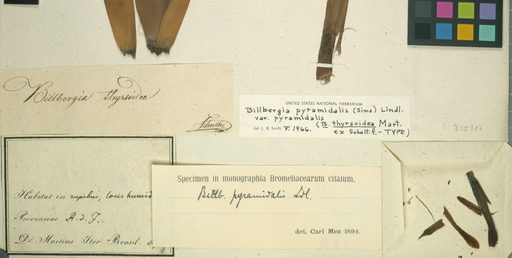 Billbergia thyrsoidea
Schultes
Habitat in rupibus, locis humid
Provinciae R. d. J.
Dr. Martius Iter Brasil.
Specimen in monographia Bromeliacearum citatum.
Billb. pyramidalis Ldl.
det. Carl Mez 1894.
UNITED STATES NATIONAL HERBARIUM
Billbergia pyramidalis (Sims) Lindl.
var. pyramidalis
(B. thyrsoidea Mart.
det L. B. Smith V. 1966. ex Schult. f. - TYPE)